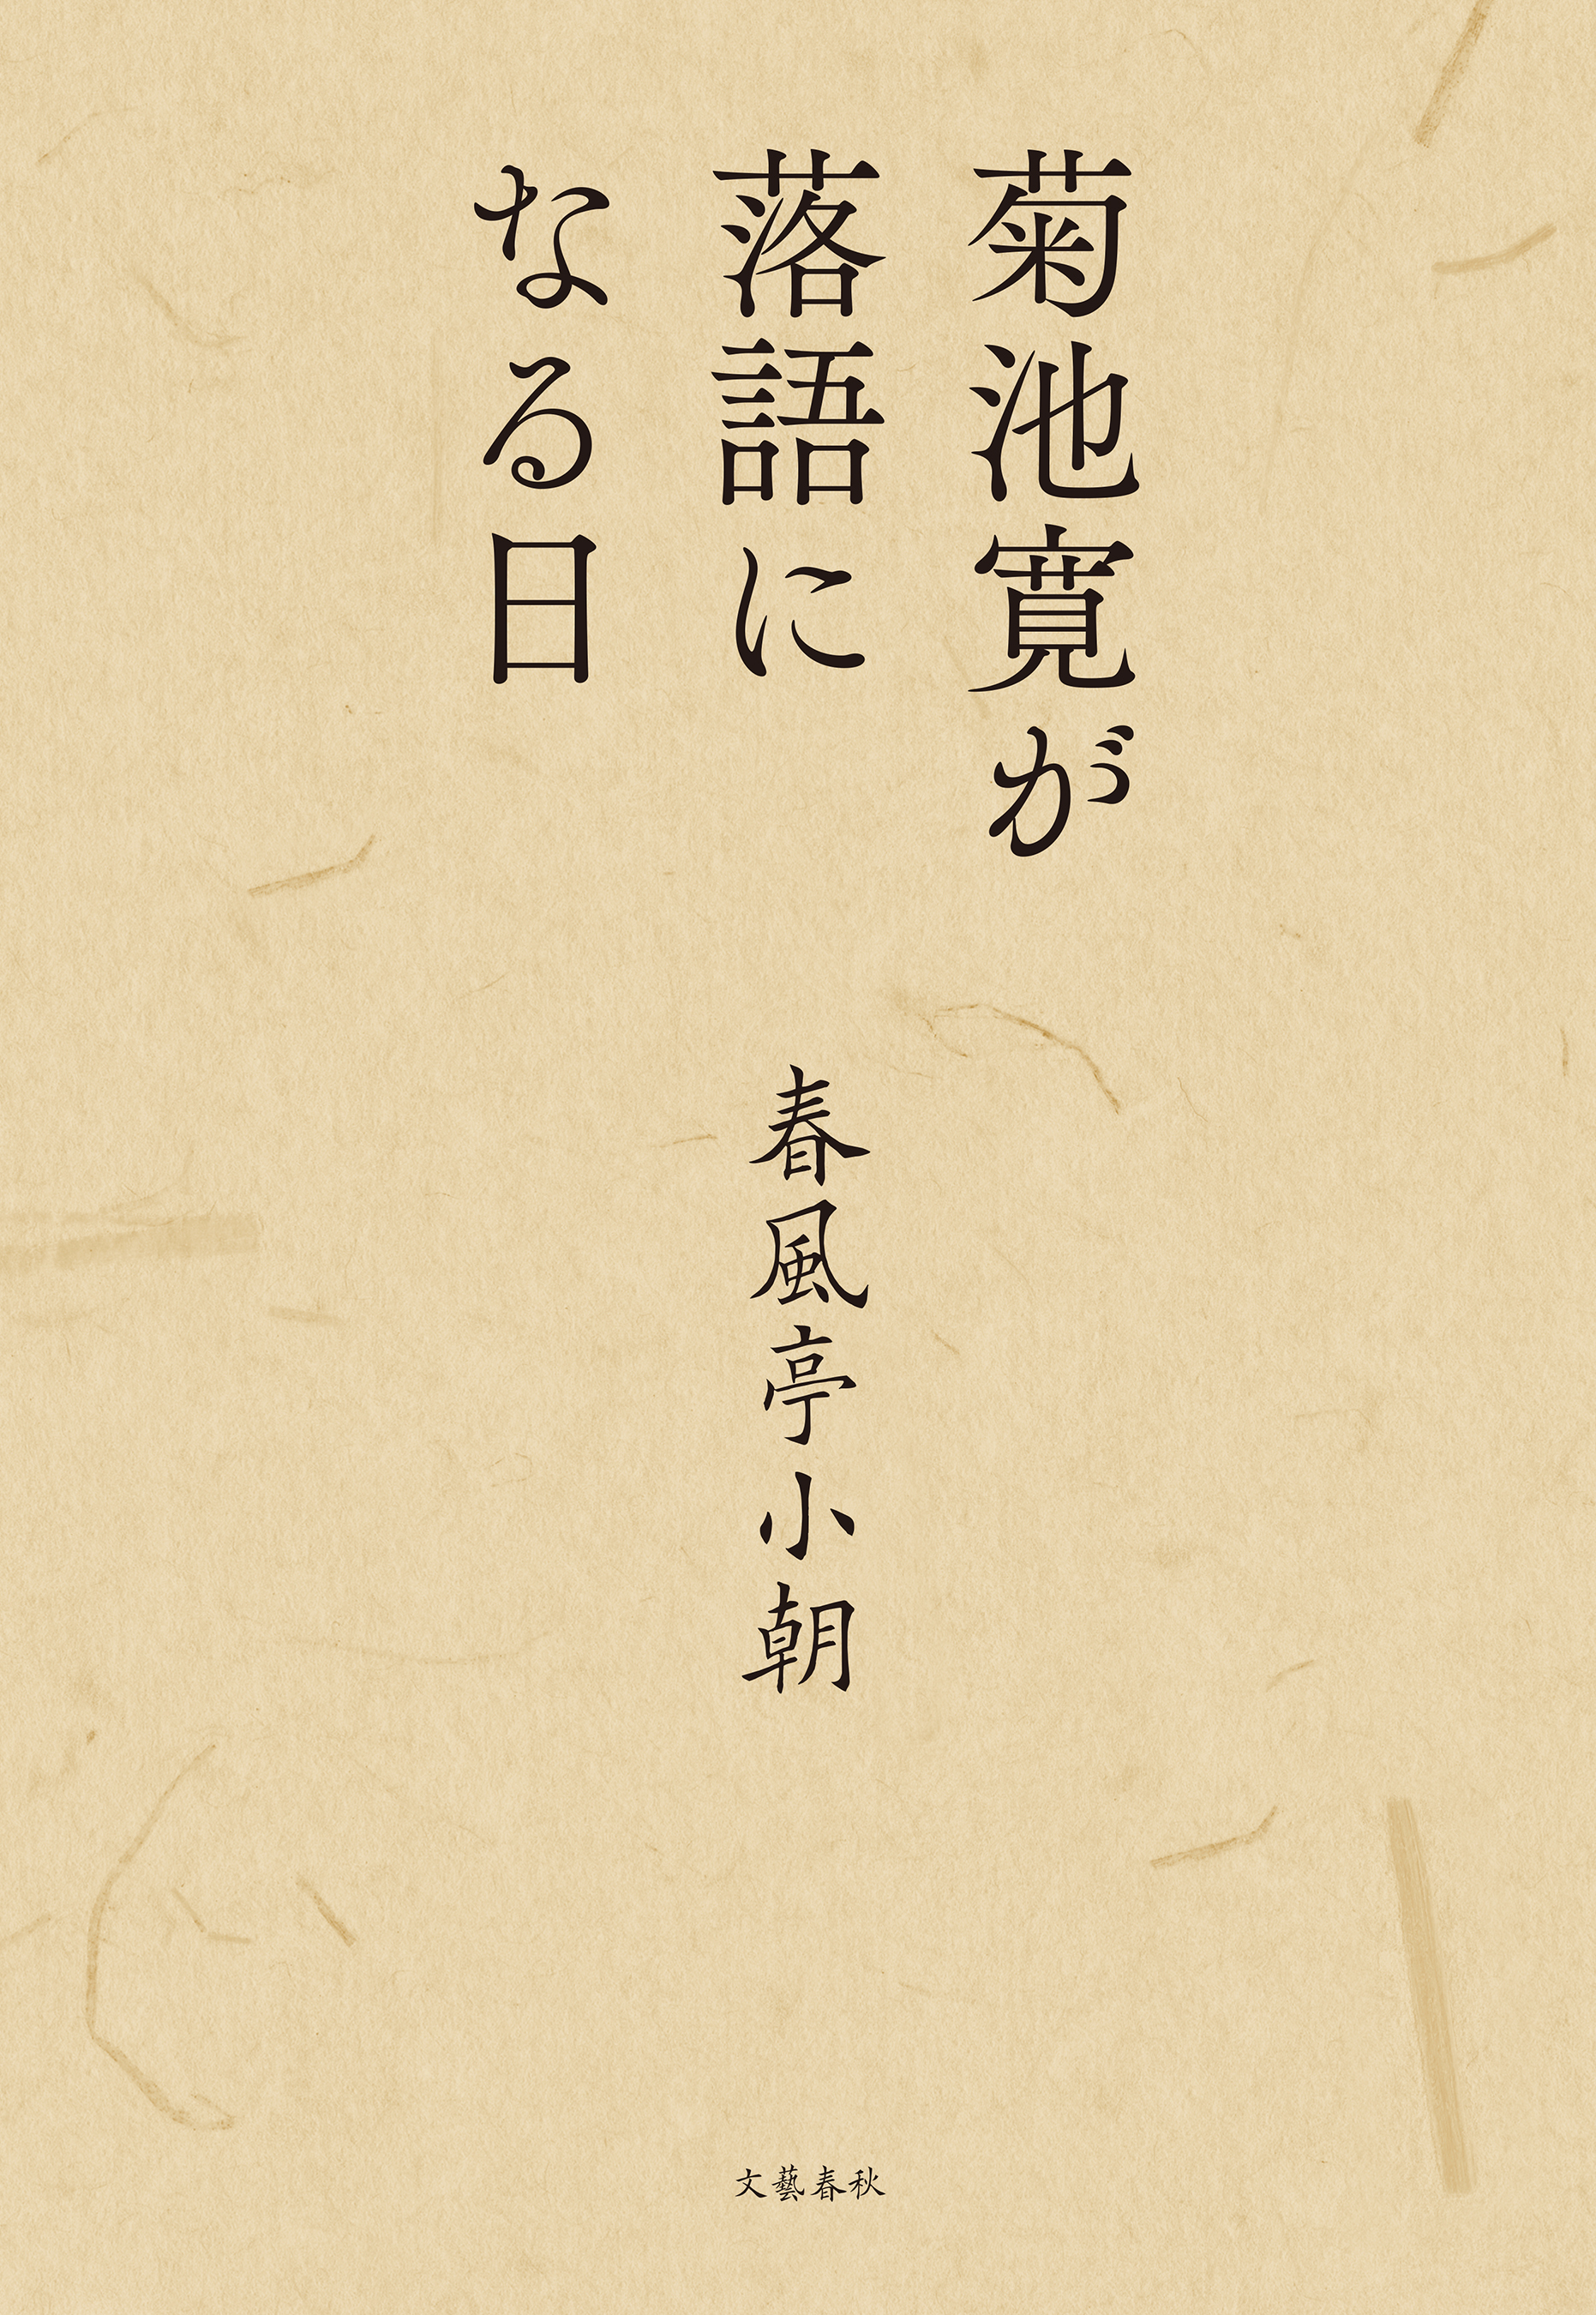 菊池寛が
落語に
なる日
春風亭小朝
文藝春秋